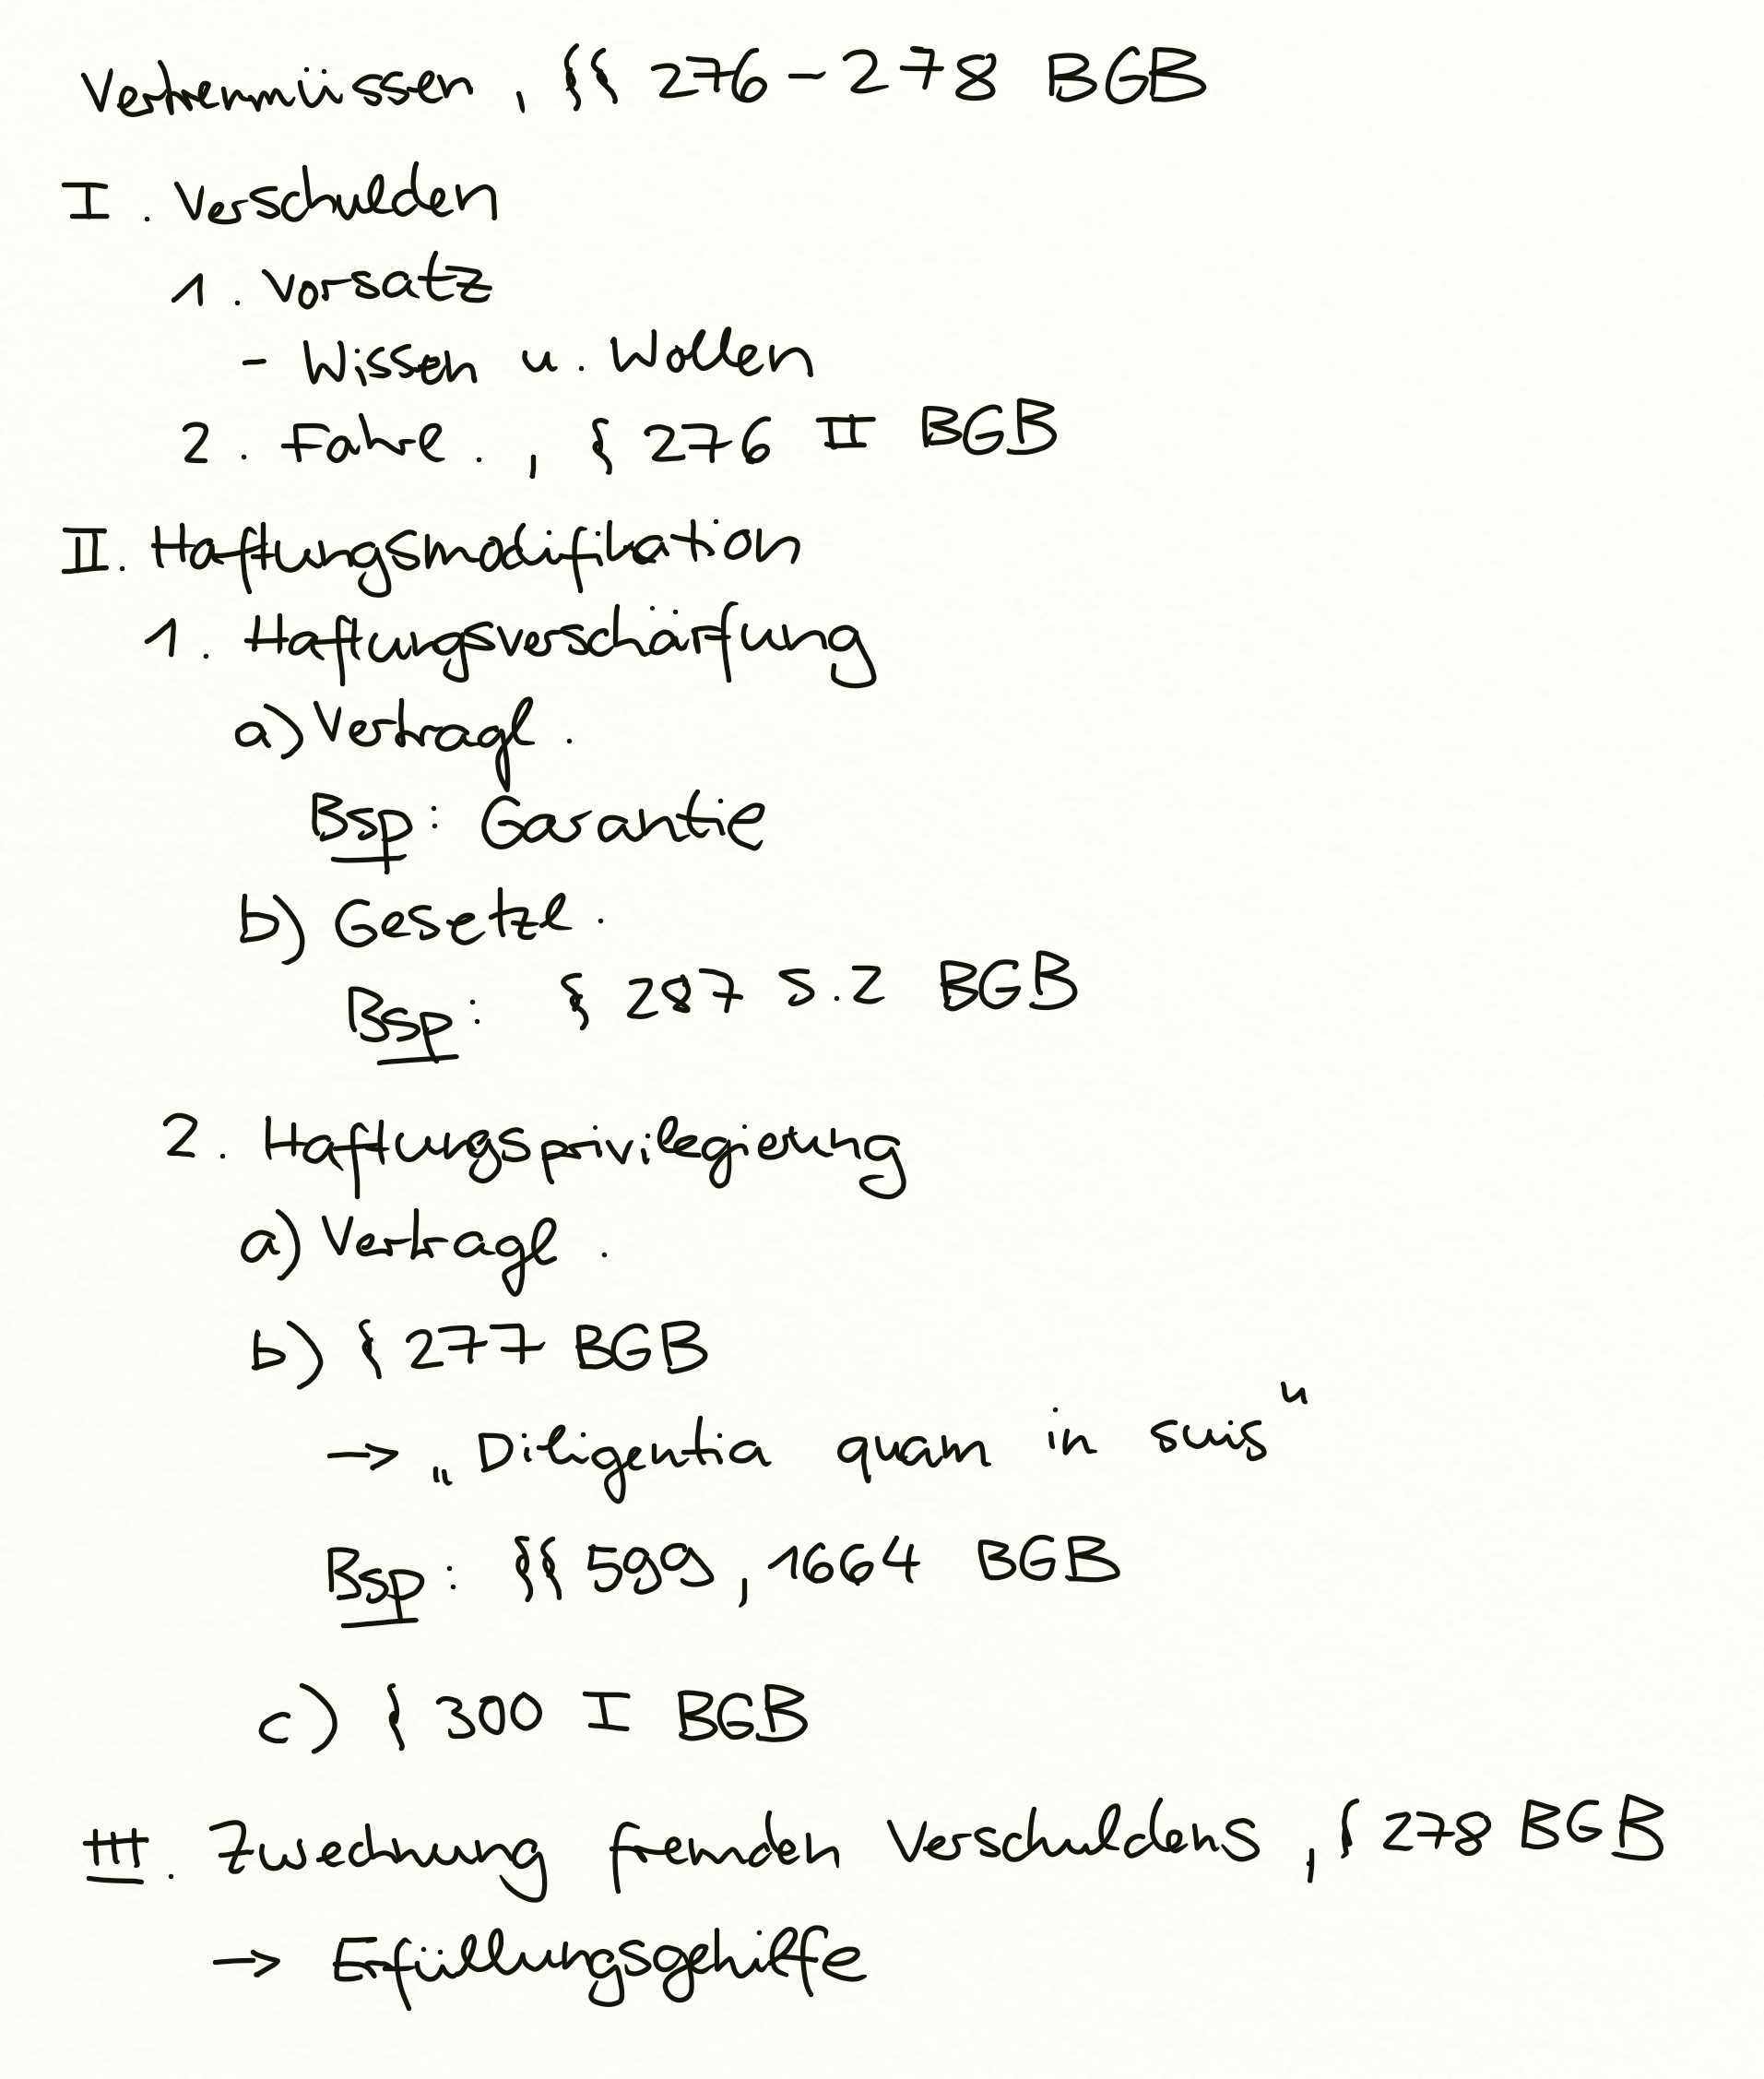 Vertretenmüssen, §§ 276-278 BGB
I. Verschulden
1. Vorsatz
- Wissen u. Wollen
2. Fahrl., § 276 II BGB
II. Haftungsmodifikation
1. Haftungsverschärfung
a) Vertragl.
Bsp: Garantie
b) Gesetzl.
Bsp: § 287 S.2 BGB
2. Haftungsprivilegierung
a) Vertragl.
b) § 277 BGB
→ „Diligentia quam in suis"
Bsp: §§ 599, 1664 BGB
c) § 300 I BGB
III. Zurechnung fremden Verschuldens, § 278 BGB
→ Erfüllungsgehilfe